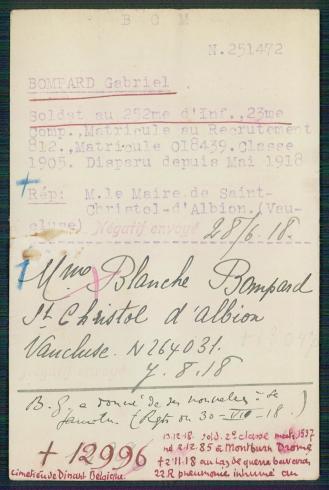 B C M
N.251472
BOMPARD Gabriel
Soldat au 252me d'Inf., 23me
Comp., Matricule au Recrutement
812., Matricule 018439. Classe
1905. Disparu depuis Mai 1918
Rép: M. le Maire de Saint-
Christol-d'Albion. (Vau-
cluse) Négatif envoyé 28/6.18.
Mme Blanche Bompard
St Christol d'albion
Vaucluse. N 264031.
7.8.18
négatif envoyé
B.G. a donné de ses nouvelles à sa
famille (Rgts du 30-VII-18.)
+ 12996
13.12.18. sold. 2e classe matr. 1337
né 2.12.85 à Montbrun Drome
+ 2.11.18 au Laz. de guerre bavarois
22 R pneumonie inhumé au
Cimetière de Dinant Belgique.